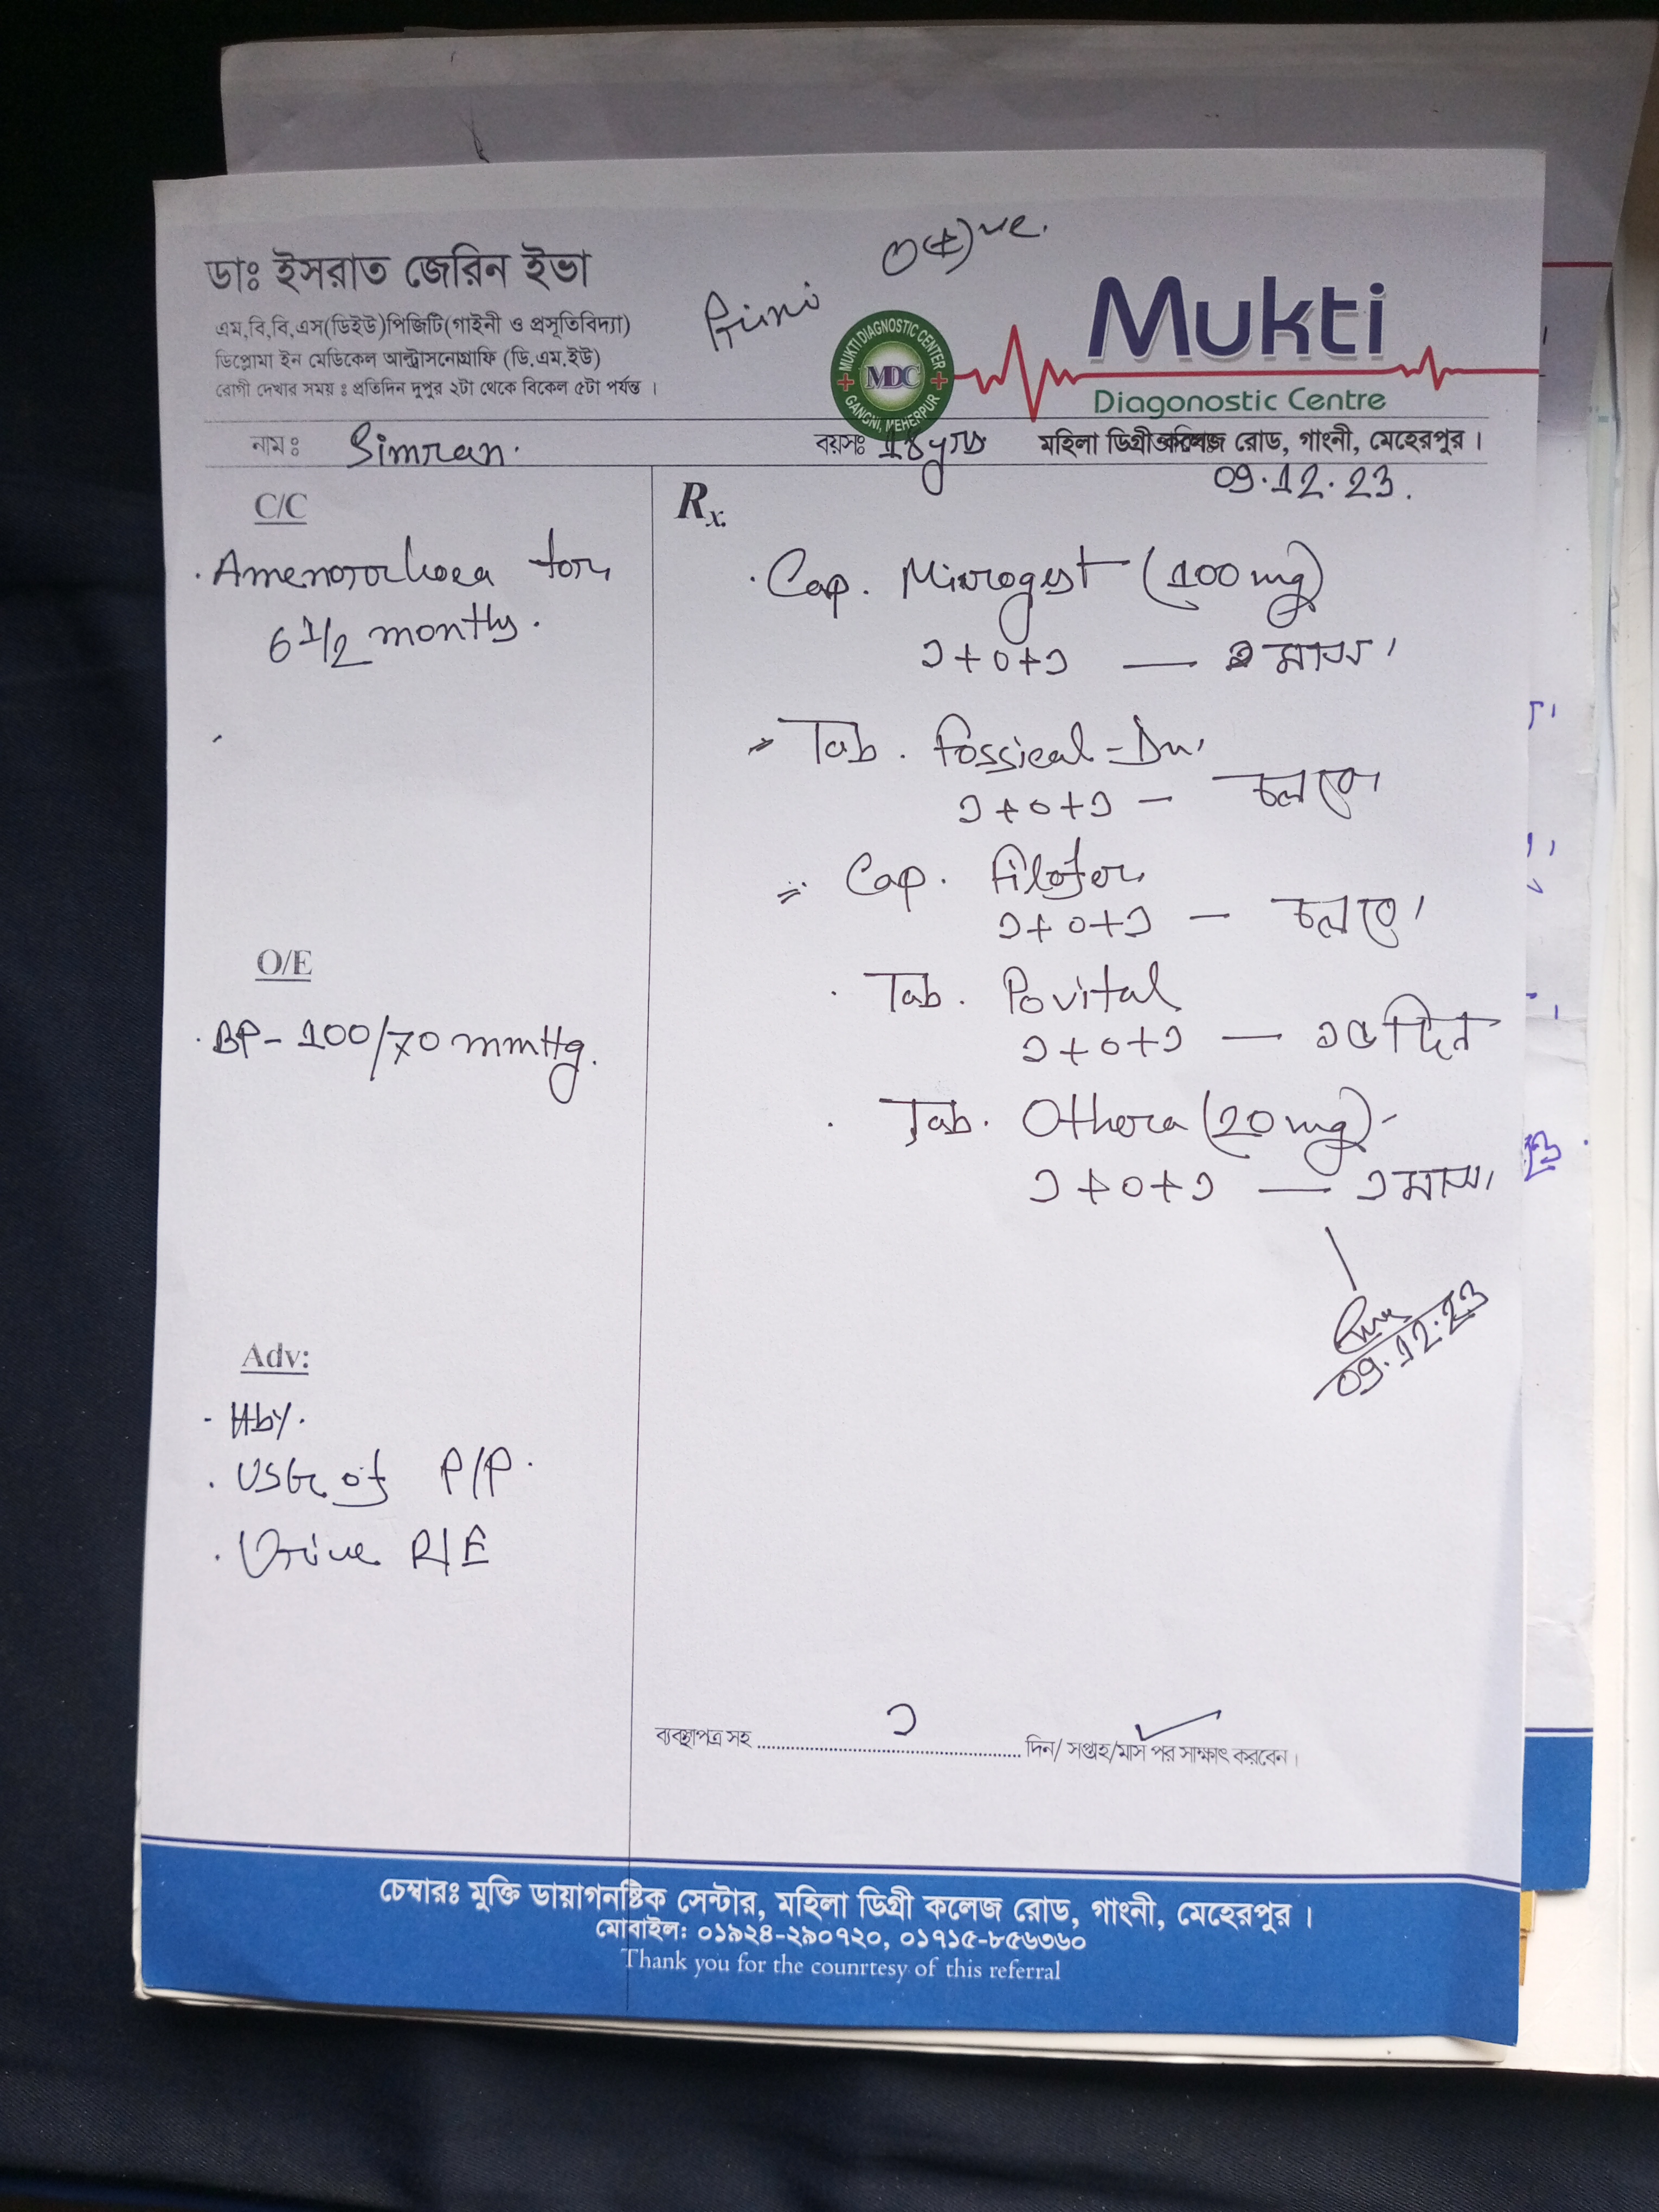 ডাঃ ইসরাত জেরিন ইভা
এম,বি,বি,এস(ডিইউ)পিজিটি(গাইনী ও প্রসূতিবিদ্যা)
ডিপ্লোমা ইন মেডিকেল আল্ট্রাসনোগ্রাফি (ডি.এম.ইউ)
রোগী দেখার সময় ঃ প্রতিদিন দুপুর ২টা থেকে বিকেল ৫টা পর্যন্ত ।
O(+)ve.
Primi
MUKTI DIAGNOSTIC CENTER
MDC
GANGNI, MEHERPUR
Mukti
Diagonostic Centre
নাম ঃ Simran.
বয়সঃ 18 yrs
মহিলা ডিগ্রী কলেজ রোড, গাংনী, মেহেরপুর ।
09.12.23.
C/C
. Amenorrhoea for
6 1/2 months.
O/E
. BP - 100/70 mmHg.
Adv:
- Hb%.
. USG of P/P.
. Urine R/E
Rx.
. Cap. Microgest (100mg)
১+০+১ — মাস।
Tab. Fossical-Dm
১+০+১ — চলবে।
Cap. Filofer
১+০+১ — চলবে।
. Tab. Povital
১+০+১ — ১৫ দিন
. Tab. Othera (20mg)-
১+০+১ — ১ মাস।
09.12.23
ব্যবস্থাপত্র সহ ........ ১ ........ দিন/ সপ্তাহ/মাস পর সাক্ষাৎ করবেন ।
চেম্বারঃ মুক্তি ডায়াগনষ্টিক সেন্টার, মহিলা ডিগ্রী কলেজ রোড, গাংনী, মেহেরপুর ।
মোবাইল: ০১৯২৪-২৯০৭২০, ০১৭১৫-৮৫৬৩৬০
Thank you for the counrtesy of this referral